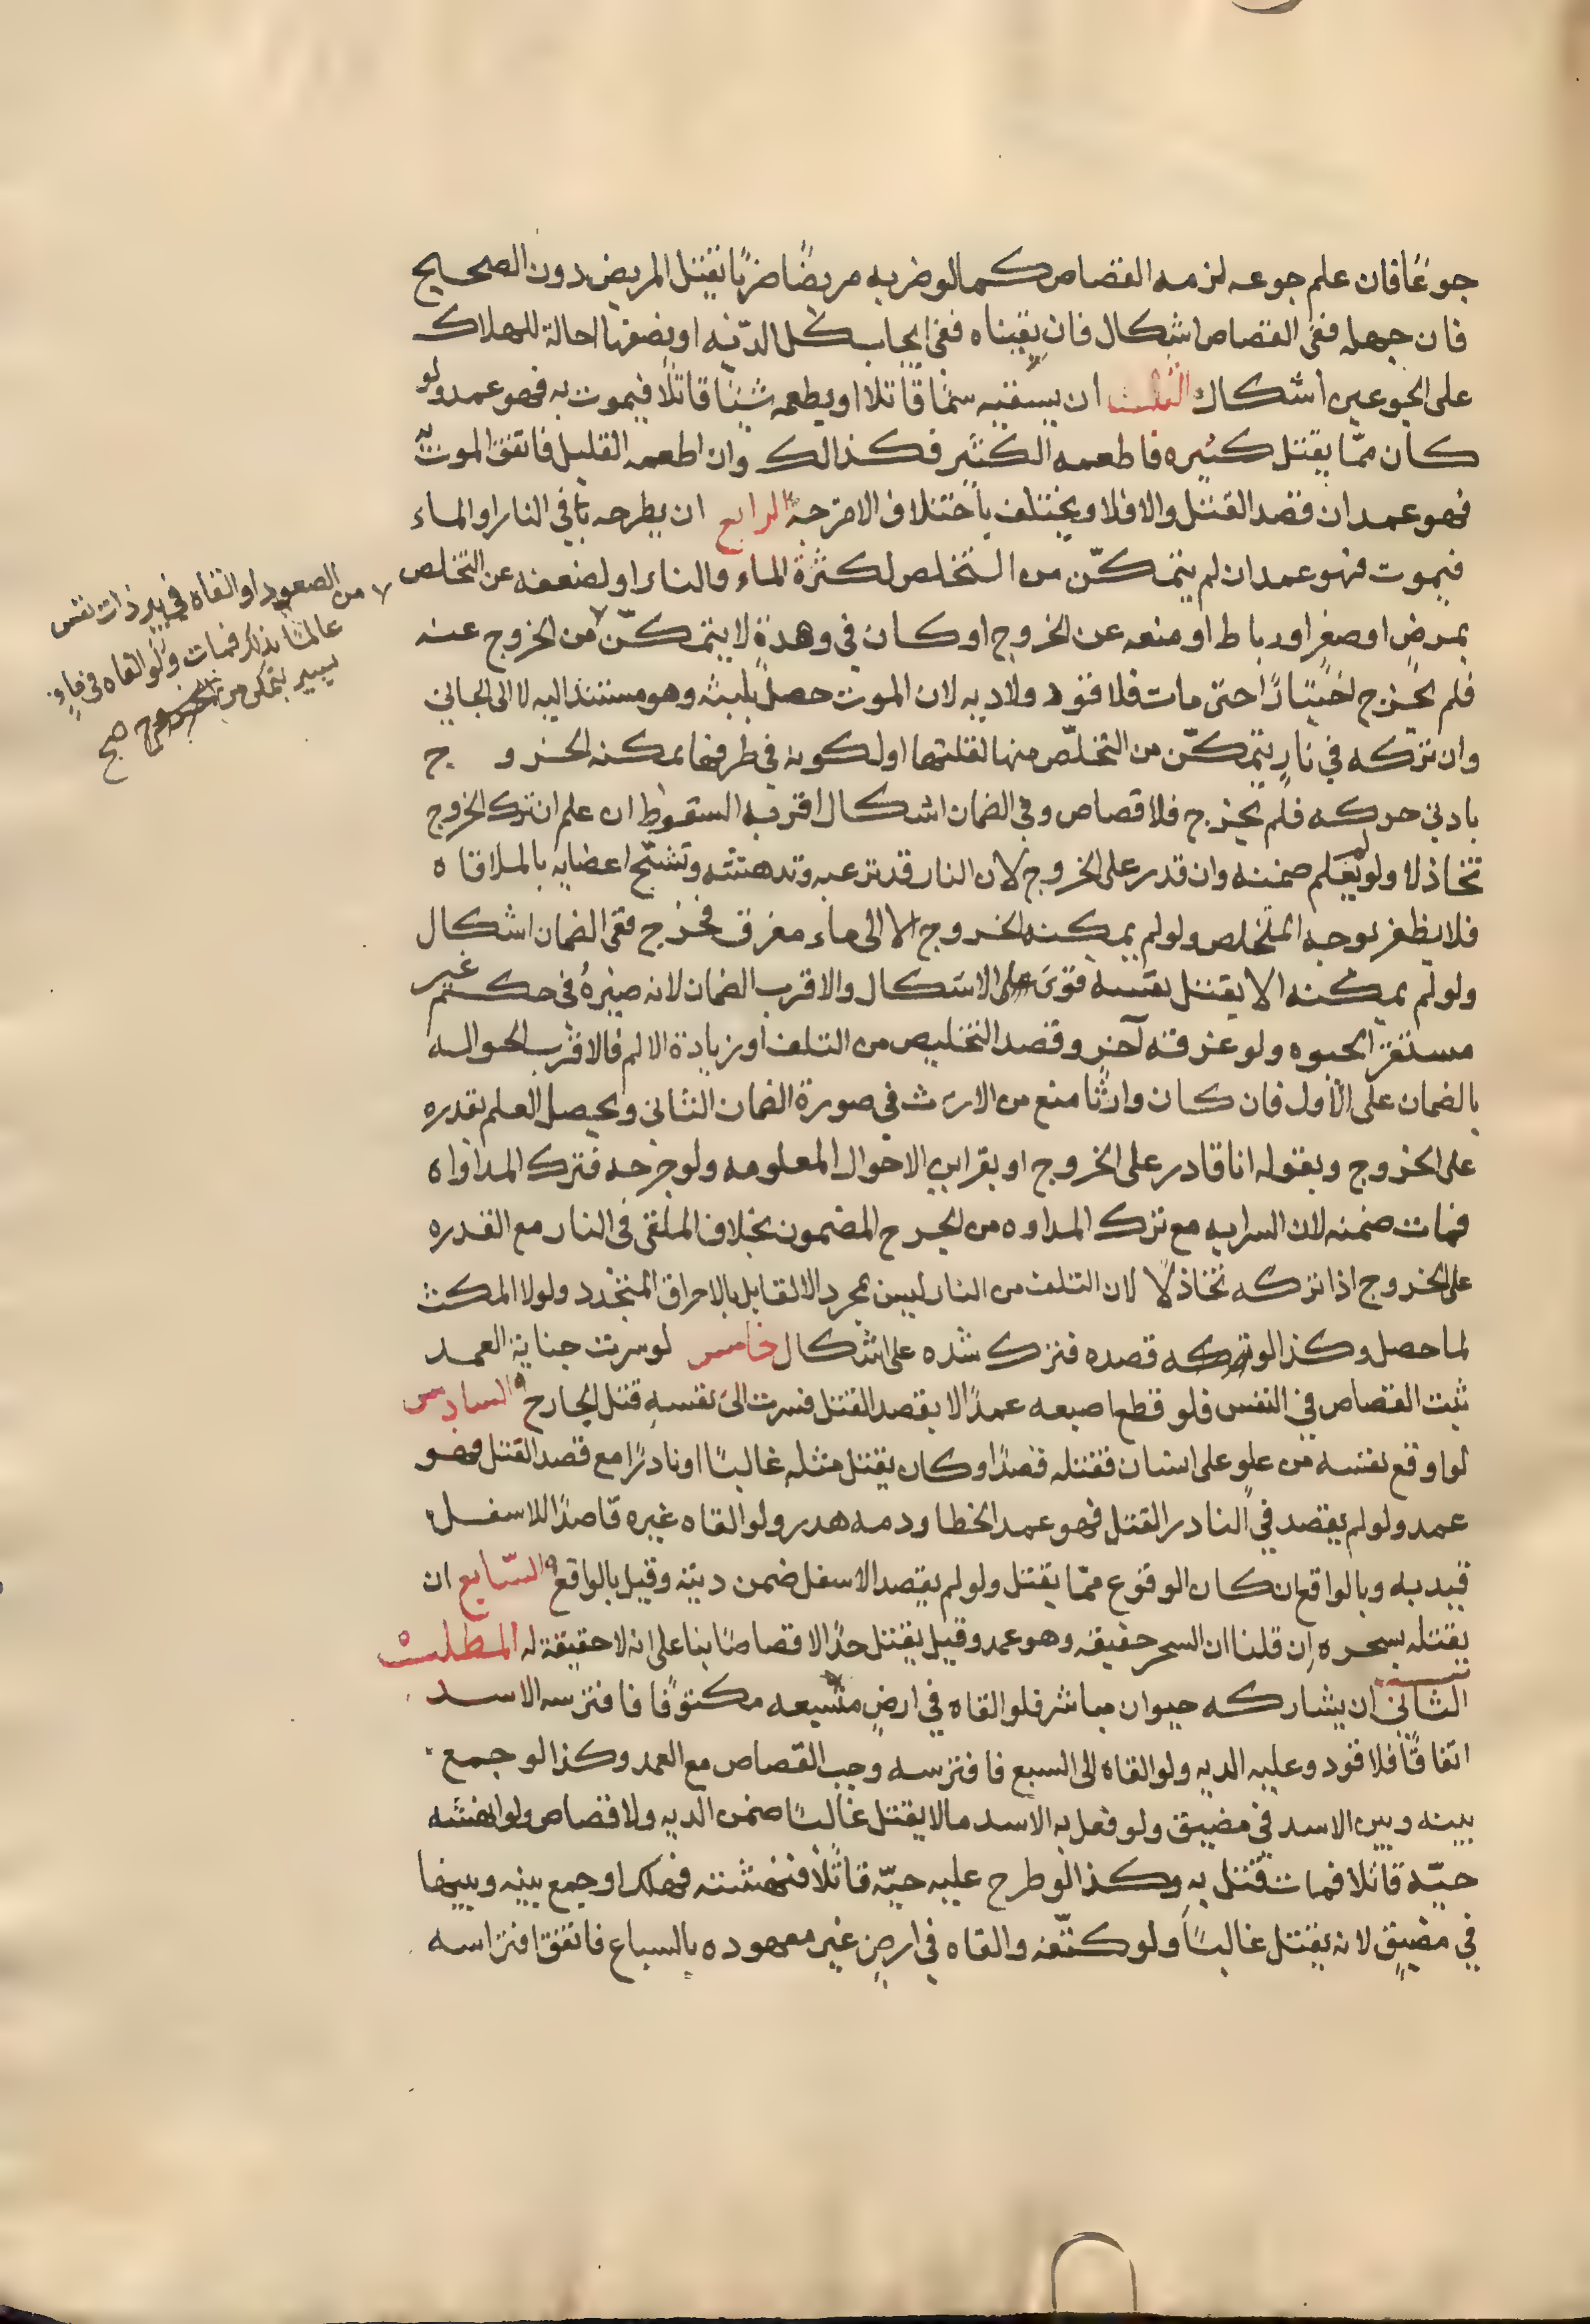 جوعًا فان علم جوعه لزمه القصاص كما لو ضربه مريضًا ضربًا يقتل المريض دون الصحيح
فان جهله ففى القصاص اشكال فان نفيناه ففى ايجاب كل الديّه او نصفها احالة للهلاك
على الجوعين اشكال الثالث ان يسقيه سمًّا قاتلا او يطعمه شيئًا قاتلًا فيموت به فهو عمد ولو
كان ممّا يقتل كثيره فاطعمه الكثير فكذلك وان اطعمه القليل فاتفق الموت به
فهو عمد ان قصد القتل والا فلا ويختلف باختلاف الامزجة الرابع ان يطرحه في النار او الماء
فيموت فهو عمد ان لم يتمكّن من التخلص لكثرة الماء والنار او لضعفه عن التخلص
بمرضٍ او صغرٍ او رباط او منعه عن الخروج او كان في وهدةٍ لا يتمكّن من الخروج عنه
فلم يخرج اختيارًا حتى مات فلا قود ولا ديه لان الموت حصل بلبثه وهو مستند اليه لا الى الجاني
وان تركه في نارٍ يتمكّن من التخلّص منها لقلتها او لكونه في طرفها يمكنه الخروج
بادني حركه فلم يخرج فلا قصاص وفي الضمان اشكال اقربه السقوط ان علم ان ترك الخروج
تخاذلا ولو لم يعلم ضمنه وان قدر على الخروج لان النار قد ترعبه وتدهشه وتشنّج اعضايه بالملاقاه
فلا يظفر بوجه المتخلص ولو لم يمكنه الخروج الا الى ماء مغرق فخرج ففى الضمان اشكال
ولو لم يمكنه الا بقتل نفسه قوى الاشكال والاقرب الضمان لانه صيّره في حكم غير
مستقر الحيوه ولو غرقه آخر وقصد التخليص من التلف او زيادة الالم فالاقرب الحواله
بالضمان على الاول فان كان وارثًا منع من الارث في صورة الضمان الثانى ويحصل العلم بقدره
على الخروج وبقوله انا قادر على الخروج او بقراين الاحوال المعلومه ولو جرحه فترك المداواه
فمات ضمنه لان السرايه مع ترك المداوه من الجرح المضمون بخلاف الملقى فى النار مع القدره
على الخروج اذا تركه تخاذلًا لان التلف من النار ليس بمجرد الالقا بل بالاحراق المتجدد ولولا المكث
لما حصل وكذا لو تركه فصده فترك شده على اشكال خامس لو سرت جناية العمد
ثبت القصاص في النفس فلو قطع اصبعه عمدًا لا بقصد القتل فسرت الى نفسه قتل الجارح السادس
لو اوقع نفسه من علوٍ على انسان فقتله قصدًا وكان يقتل مثله غالبًا او نادرًا مع قصد القتل فهو
عمد ولو لم يقصد في النادر القتل فهو عمد الخطا ودمه هدر ولو القاه غيره قاصدًا للاسفل
قيد به وبالواقع ان كان الوقوع ممّا يقتل ولو لم يقصد الاسفل ضمن ديته وقيل بالواقع السّابع ان
يقتله بسحره ان قلنا ان السحر حقيقه وهو عمد وقيل يقتل حدًّا لا قصاصًا بنا على انه لا حقيقة له المطلب
الثاني ان يشاركه حيوان مباشر فلو القاه في ارضٍ مسبعه مكتوفًا فافترسه الاسد
اتفاقًا فلا قود وعليه الديه ولو القاه الى السبع فافترسه وجب القصاص مع العمد وكذا لو جمع
بينه وبين الاسد في مضيق ولو فعل به الاسد مالا يقتل غالبًا ضمن الديه ولا قصاص ولو انهشه
حيّه قاتلا فمات قتل به وكذا لو طرح عليه حيّه قاتلًا فنهشته فهلك او جمع بينه وبينها
في مضيقٍ لانه يقتل غالبًا ولو كتّفه والقاه في ارضٍ غير معهوده بالسباع فاتفق افتراسه
من الصعود او القاه في بير ذات نفس
عالمًا بذلك فمات ولو القاه في ماءٍ
يسير يتمكن من الخروج صح